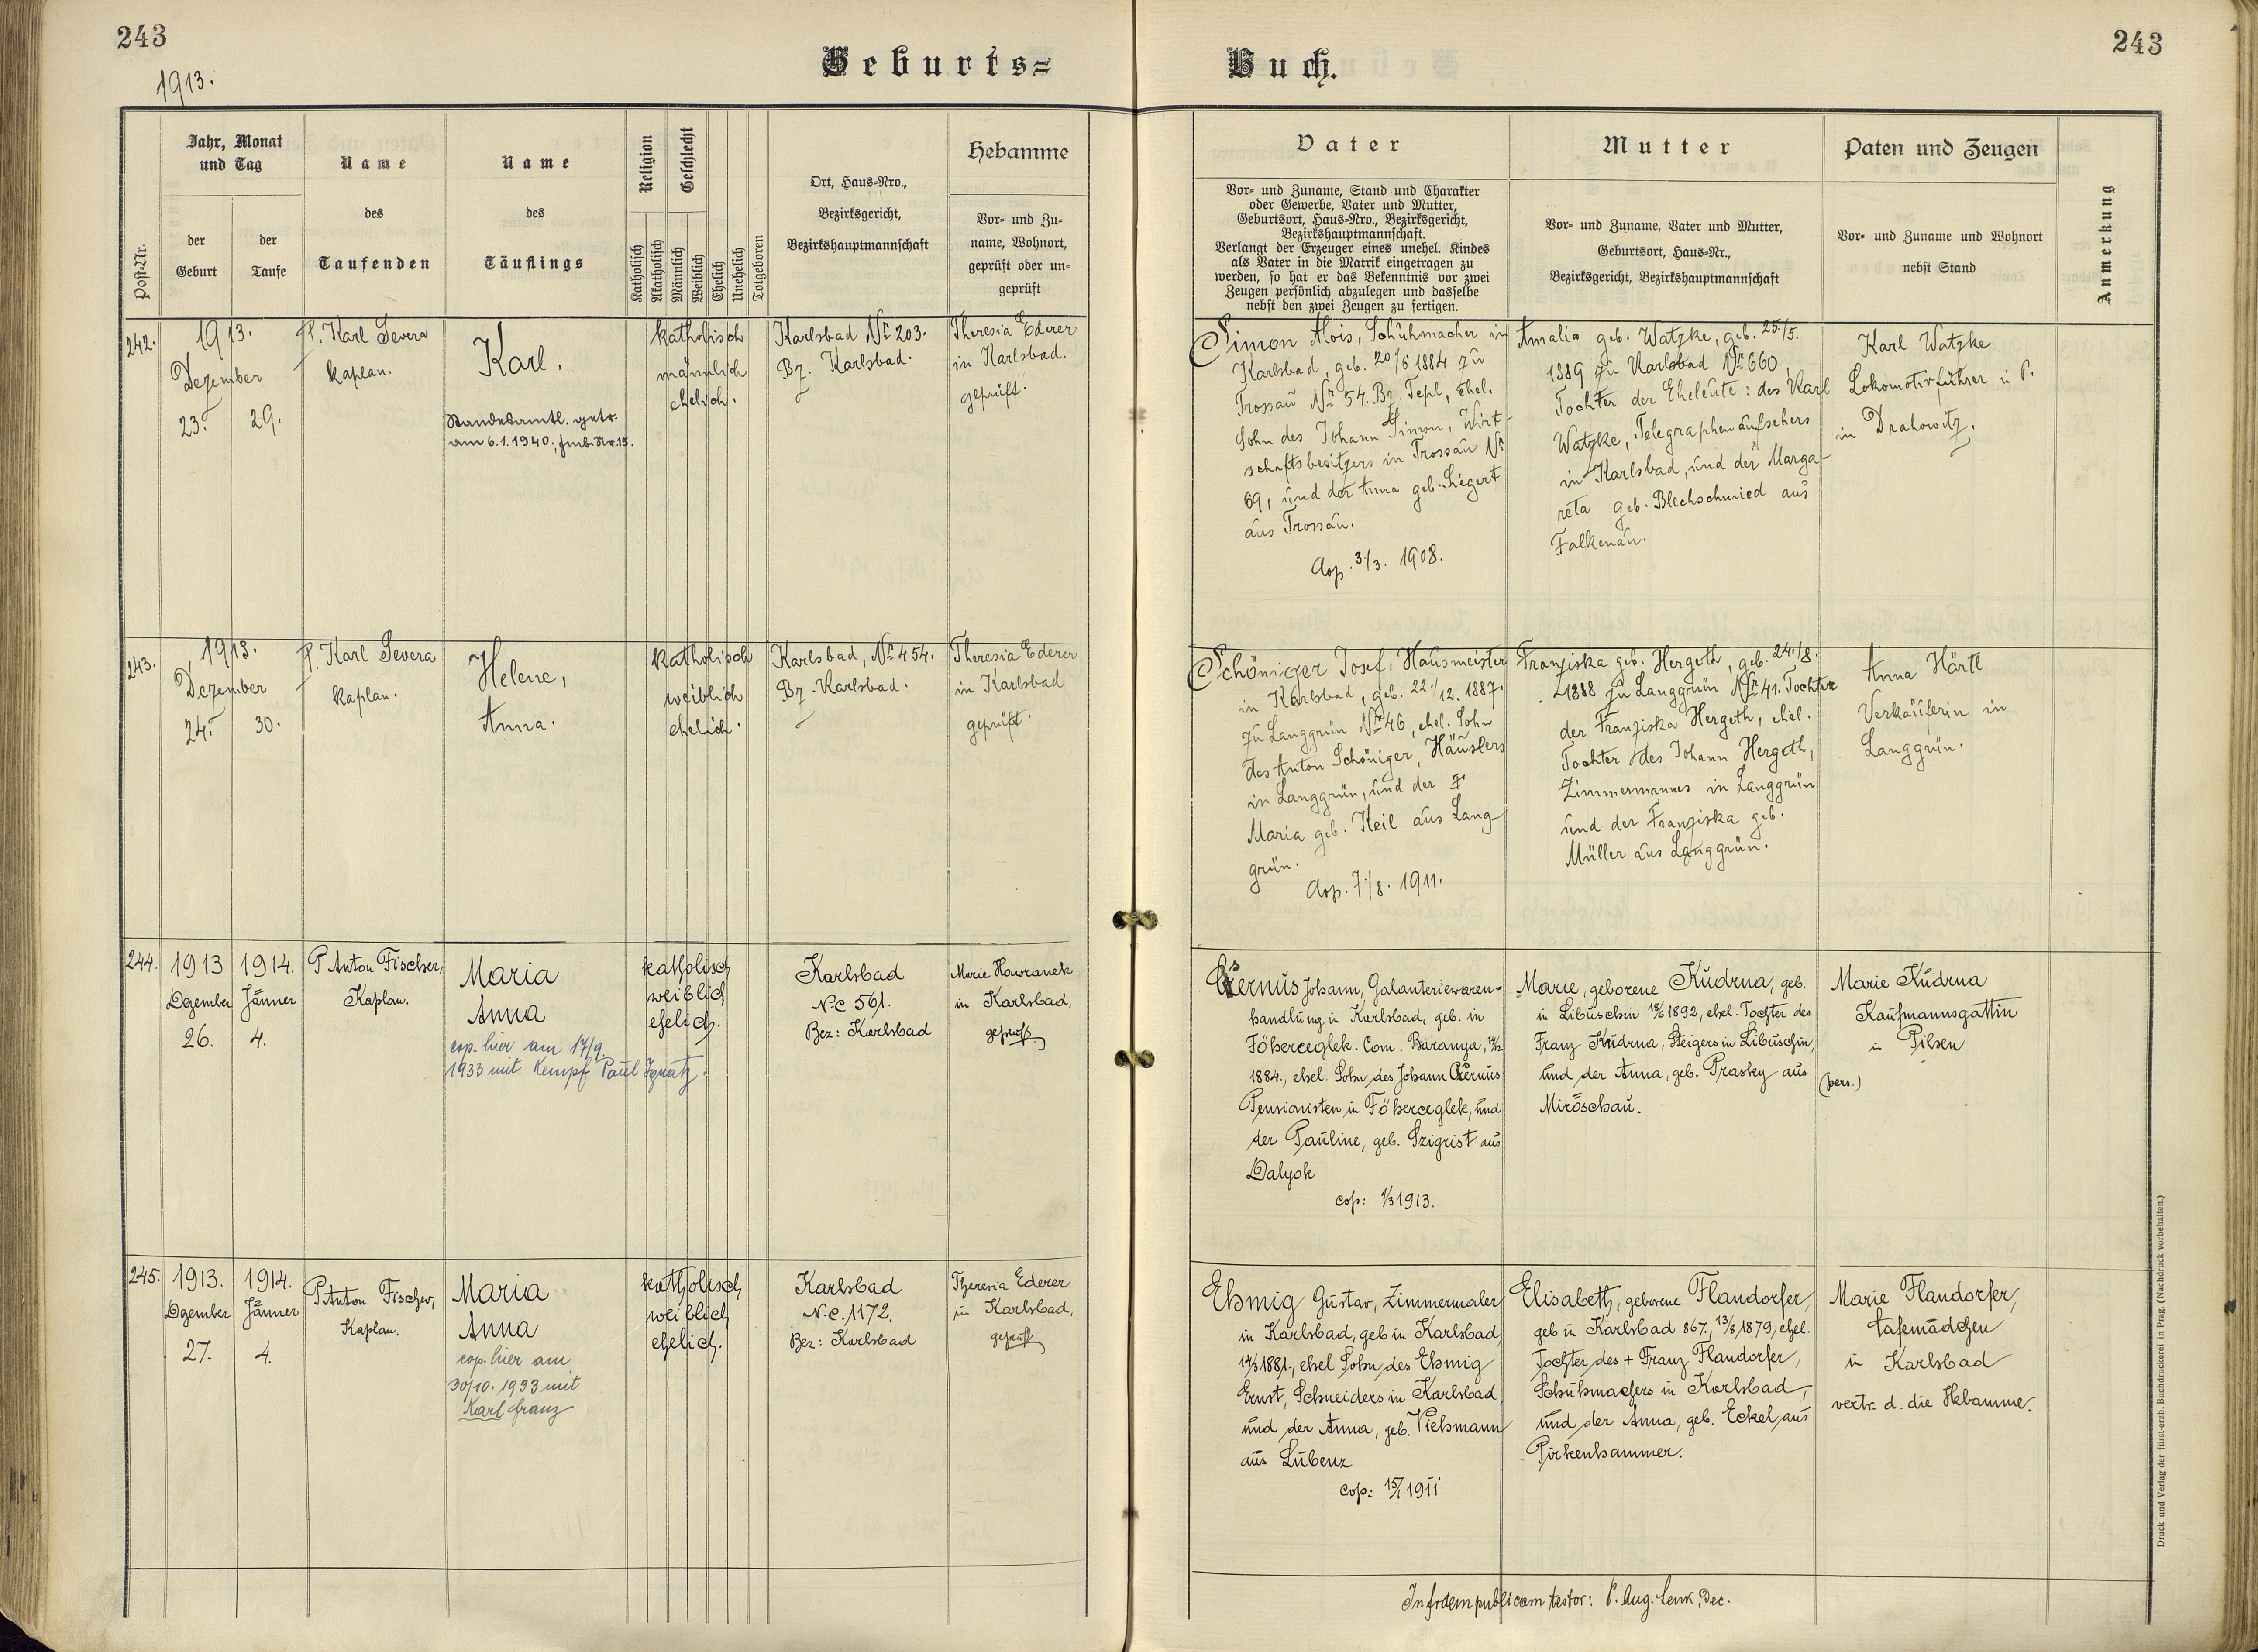 243
243
Geburts=
Buch.
1913.
Post-Nr.
Jahr, Monat
und Tag
der
Geburt
der
Taufe
Name
des
Taufenden
Name
des
Täuflings
Religion
Geschlecht
Katholisch
Akatholisch
Männlich
Weiblich
Ehelich
Unehelich
Totgeboren
Ort, Haus=Nro.,
Bezirksgericht,
Bezirkshauptmannschaft
Hebamme
Vor= und Zu=
name, Wohnort,
geprüft oder un=
geprüft
Vater
Vor= und Zuname, Stand und Charakter
oder Gewerbe, Vater und Mutter,
Geburtsort, Haus=Nro., Bezirksgericht,
Bezirkshauptmannschaft.
Verlangt der Erzeuger eines unehel. Kindes
als Vater in die Matrik eingetragen zu
werden, so hat er das Bekenntnis vor zwei
Zeugen persönlich abzulegen und dasselbe
nebst den zwei Zeugen zu fertigen.
Mutter
Vor= und Zuname, Vater und Mutter,
Geburtsort, Haus=Nr.,
Bezirksgericht, Bezirkshauptmannschaft
Paten und Zeugen
Vor= und Zuname und Wohnort
nebst Stand
Anmerkung
242.
1913.
Dezember
23.
29.
P. Karl Severa
Kaplan.
Karl.
Standesamtl. getr.
am 6.1.1940; Fmb. Nr. 15.
katholisch
männlich
ehelich.
Karlsbad Nr 203.
Bz. Karlsbad.
Theresia Ederer
in Karlsbad.
geprüft.
Simon Alois, Schuhmacher in
Karlsbad, geb. 20/6 1884 zu
Trossau Nr 54. Bz. Tepl, ehel.
Sohn des Johann Simon, Wirt-
schaftsbesitzers in Trossau Nr
69, und der Anna geb. Siegert
aus Trossau.
Cop. 3./3. 1908.
Amalia geb. Watzke, geb. 25./5.
1889 zu Karlsbad Nr 660,
Tochter der Eheleute: des Karl
Watzke, Telegraphenaufsehers
in Karlsbad, und der Marga-
reta geb. Blechschmied aus
Falkenau.
Karl Watzke
Lokomotivführer i. P.
in Drahowitz.
243.
1913.
Dezember
24.
30.
P. Karl Severa
Kaplan.
Helene,
Anna.
katholisch
weiblich
ehelich.
Karlsbad, Nr 454.
Bz. Karlsbad.
Theresia Ederer
in Karlsbad
geprüft.
Schöniger Josef, Hausmeister
in Karlsbad, geb. 22./12. 1887.
zu Langgrün Nr 46, ehel. Sohn
des Anton Schöniger, Häuslers
in Langgrün, und der
Maria geb. Keil aus Lang-
grün.
Cop. 7./8. 1911.
Franziska geb. Hergeth, geb. 24./8.
1888 zu Langgrün Nr 41. Tochter
der Franziska Hergeth, ehel.
Tochter des Johann Hergeth,
Zimmermannes in Langgrün
und der Franziska geb.
Müller aus Langgrün.
Anna Härtl
Verkäuferin in
Langgrün.
244.
1913
Dezember
26.
1914.
Jänner
4.
P Anton Fischer,
Kaplan.
Maria
Anna
cop. hier am 17/9
1933 mit Kempf Paul Ignatz.
katholisch
weiblich
ehelich.
Karlsbad
N.C 561.
Bez: Karlsbad
Marie Howranek
in Karlsbad,
geprüft
Johann, Galanteriewaren-
handlung in Karlsbad, geb. in
Föherceglek. Com. Baranya,
1884., ehel. Sohn des Johann
Pensionisten in Föherceglek, und
der Pauline, geb. Szigrist aus
Dalyok
cop: 1/3 1913.
Marie, geborene Kudrna, geb.
in Libuschin 18/6 1892, ehel. Tochter des
Franz Kudrna, Steigers in Libuschin,
und der Anna, geb. Prasky aus
Miröschau.
Marie Kudrna
Kaufmannsgattin
in Pilsen
(pers.)
245.
1913.
Dezember
27.
1914.
Jänner
4.
P Anton Fischer,
Kaplan.
Maria
Anna
cop. hier am
30/10. 1933 mit
Karl Franz
katholisch
weiblich
ehelich.
Karlsbad
N.C. 1172.
Bez: Karlsbad
Theresia Ederer
in Karlsbad,
geprüft
Ehmig Gustav, Zimmermaler
in Karlsbad, geb in Karlsbad,
14/3 1881., ehel Sohn des Ehmig
Ernst, Schneiders in Karlsbad,
und der Anna, geb. Viehmann
aus Lubenz
cop: 15/1 1911
Elisabeth, geborene Flandorfer,
geb in Karlsbad 867., 13/8 1879, ehel.
Tochter des + Franz Flandorfer,
Schuhmachers in Karlsbad,
und der Anna, geb. Eckel, aus
Pirkenhammer.
Marie Flandorfer,
Cafemädchen
in Karlsbad
vertr. d. die Hebamme.
In fidem publicam testor: P. Aug. Lenk, Dec.
Druck und Verlag der fürst-erzb. Buchdruckerei in Prag. (Nachdruck vorbehalten.)